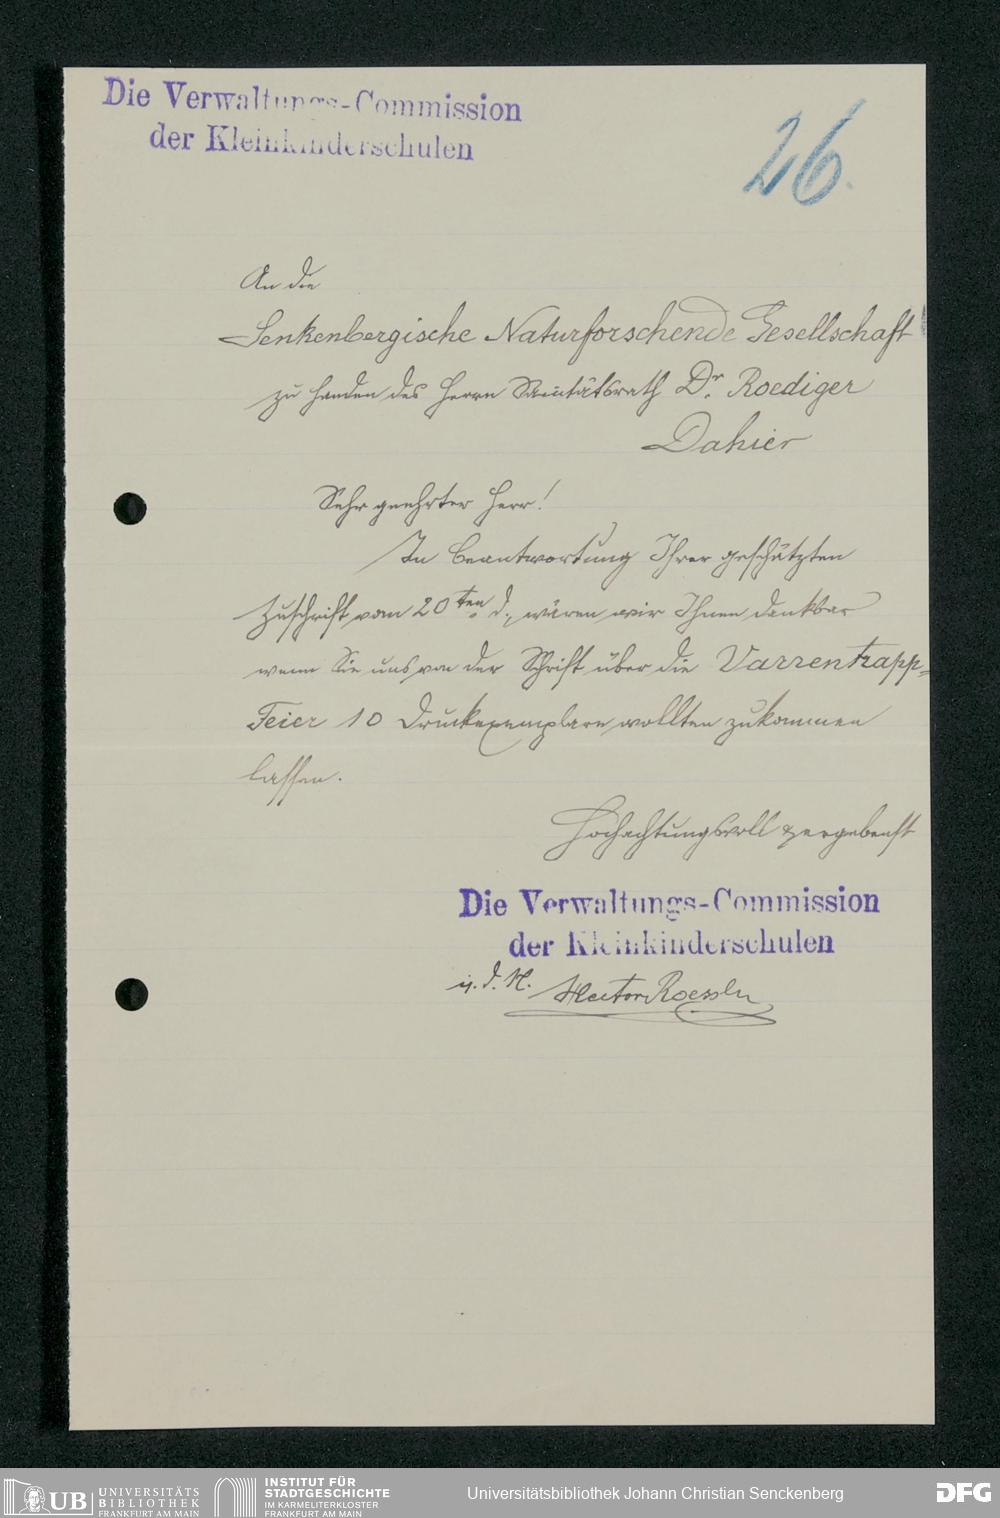 Die Verwaltungs-Commission
der Kleinkinderschulen
26.
An die
Senkenbergische Naturforschende Gesellschaft
zu Handen des Herrn Sanitätsrath Dr. Roediger
Dahier
Sehr geehrter Herr!
In Beantwortung Ihrer geschätzten
Zuschrift vom 20ten d., wären wir Ihnen dankbar
wenn Sie uns von der Schrift über die Varrentrapp-
Feier 10 Druckexemplare wollten zukommen
lassen.
Hochachtungsvoll ergebenst
Die Verwaltungs-Commission
der Kleinkinderschulen
Hector Roessler
UB UNIVERSITÄTS
BIBLIOTHEK
FRANKFURT AM MAIN
INSTITUT FÜR
STADTGESCHICHTE
IM KARMELITERKLOSTER
FRANKFURT AM MAIN
Universitätsbibliothek Johann Christian Senckenberg
DFG